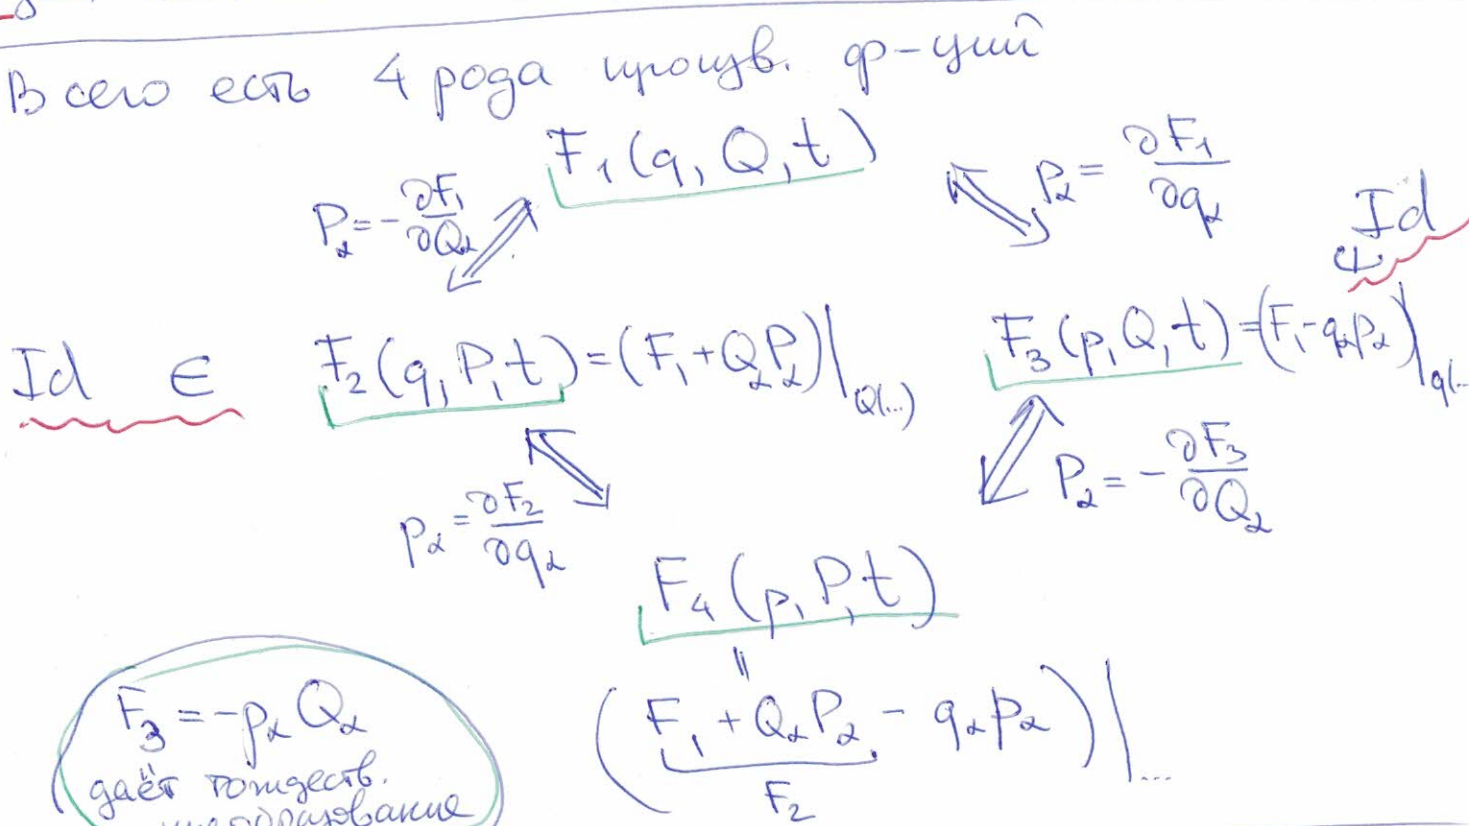 Всего есть 4 рода произв. ф-ций
F₁(q, Q, t)
P_α = -∂F₁/∂Q_α
p_α = ∂F₁/∂q_α
Id
∈
Id ∈ F₂(q, P, t) = (F₁ + Q_α P_α)|_Q(...)
F₃(p, Q, t) = (F₁ - q_α p_α)|_q(..
p_α = ∂F₂/∂q_α
P_α = -∂F₃/∂Q_α
F₄(p, P, t)
=
(F₁ + Q_α P_α - q_α p_α)|...
F₂
F₃ = -p_α Q_α
даёт тождеств.
преобразование